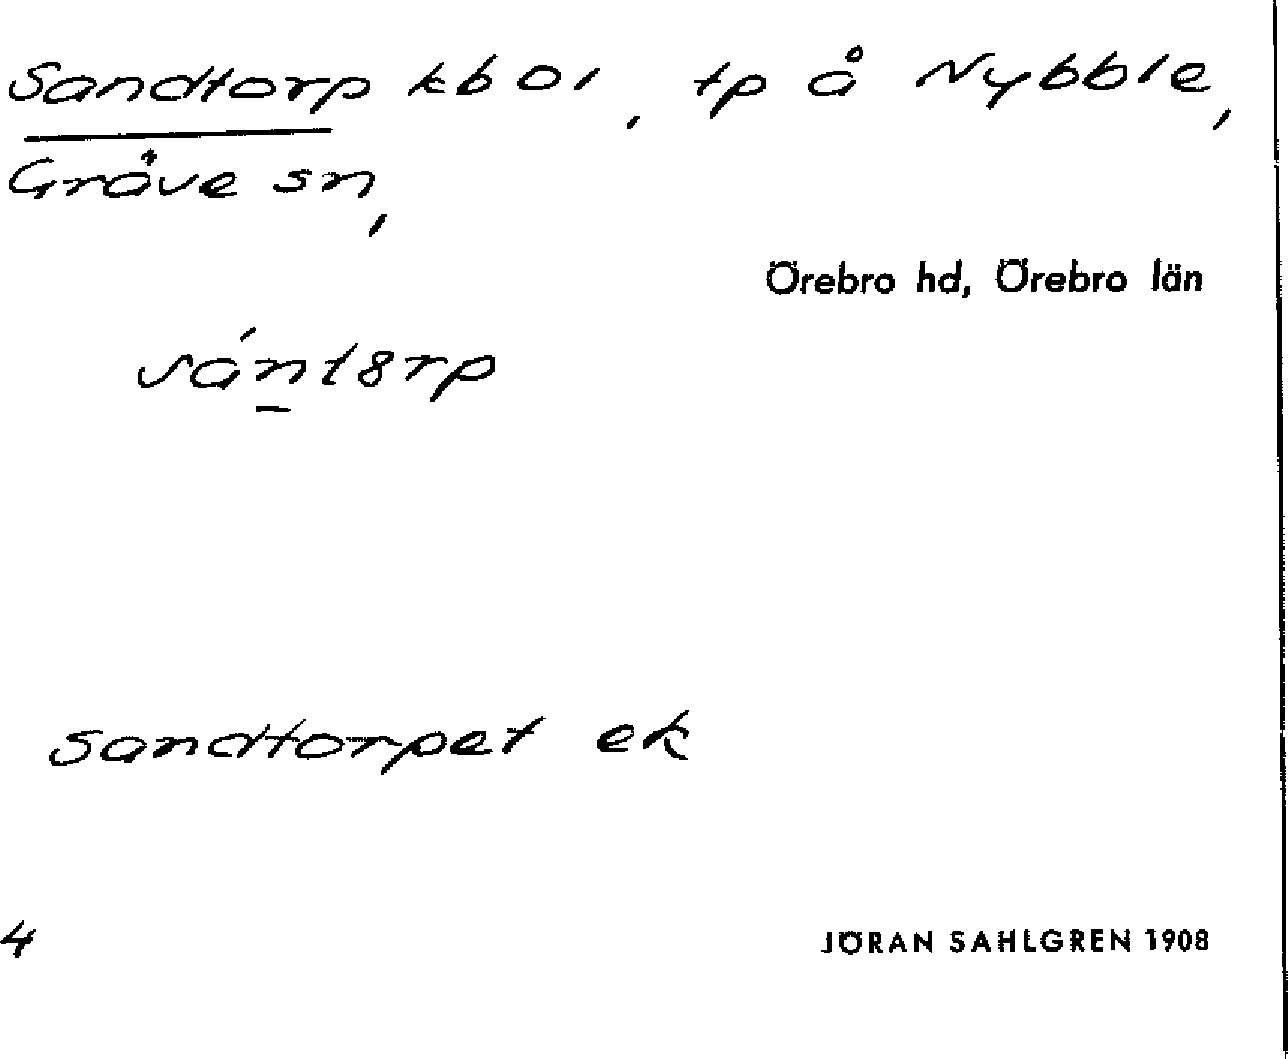 Sandtorp kb 01, tp å Nybble,
Gråve sn,
Örebro hd, Örebro län
sánt8rp
sandtorpet ek
4 JÖRAN SAHLGREN 1908